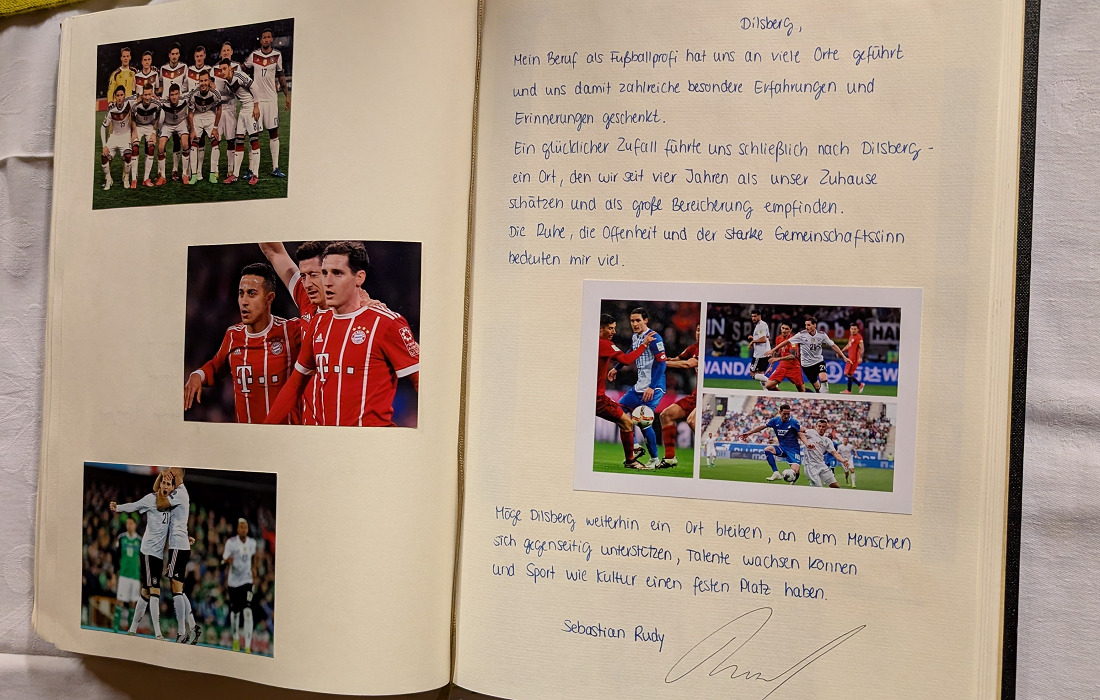 Dilsberg,
Mein Beruf als Fußballprofi hat uns an viele Orte geführt
und uns damit zahlreiche besondere Erfahrungen und
Erinnerungen geschenkt.
Ein glücklicher Zufall führte uns schließlich nach Dilsberg -
ein Ort, den wir seit vier Jahren als unser Zuhause
schätzen und als große Bereicherung empfinden.
Die Ruhe, die Offenheit und der starke Gemeinschaftssinn
bedeuten mir viel.
Möge Dilsberg weiterhin ein Ort bleiben, an dem Menschen
sich gegenseitig unterstützen, Talente wachsen können
und Sport wie Kultur einen festen Platz haben.
Sebastian Rudy
17
T
T
21
WANDA
21